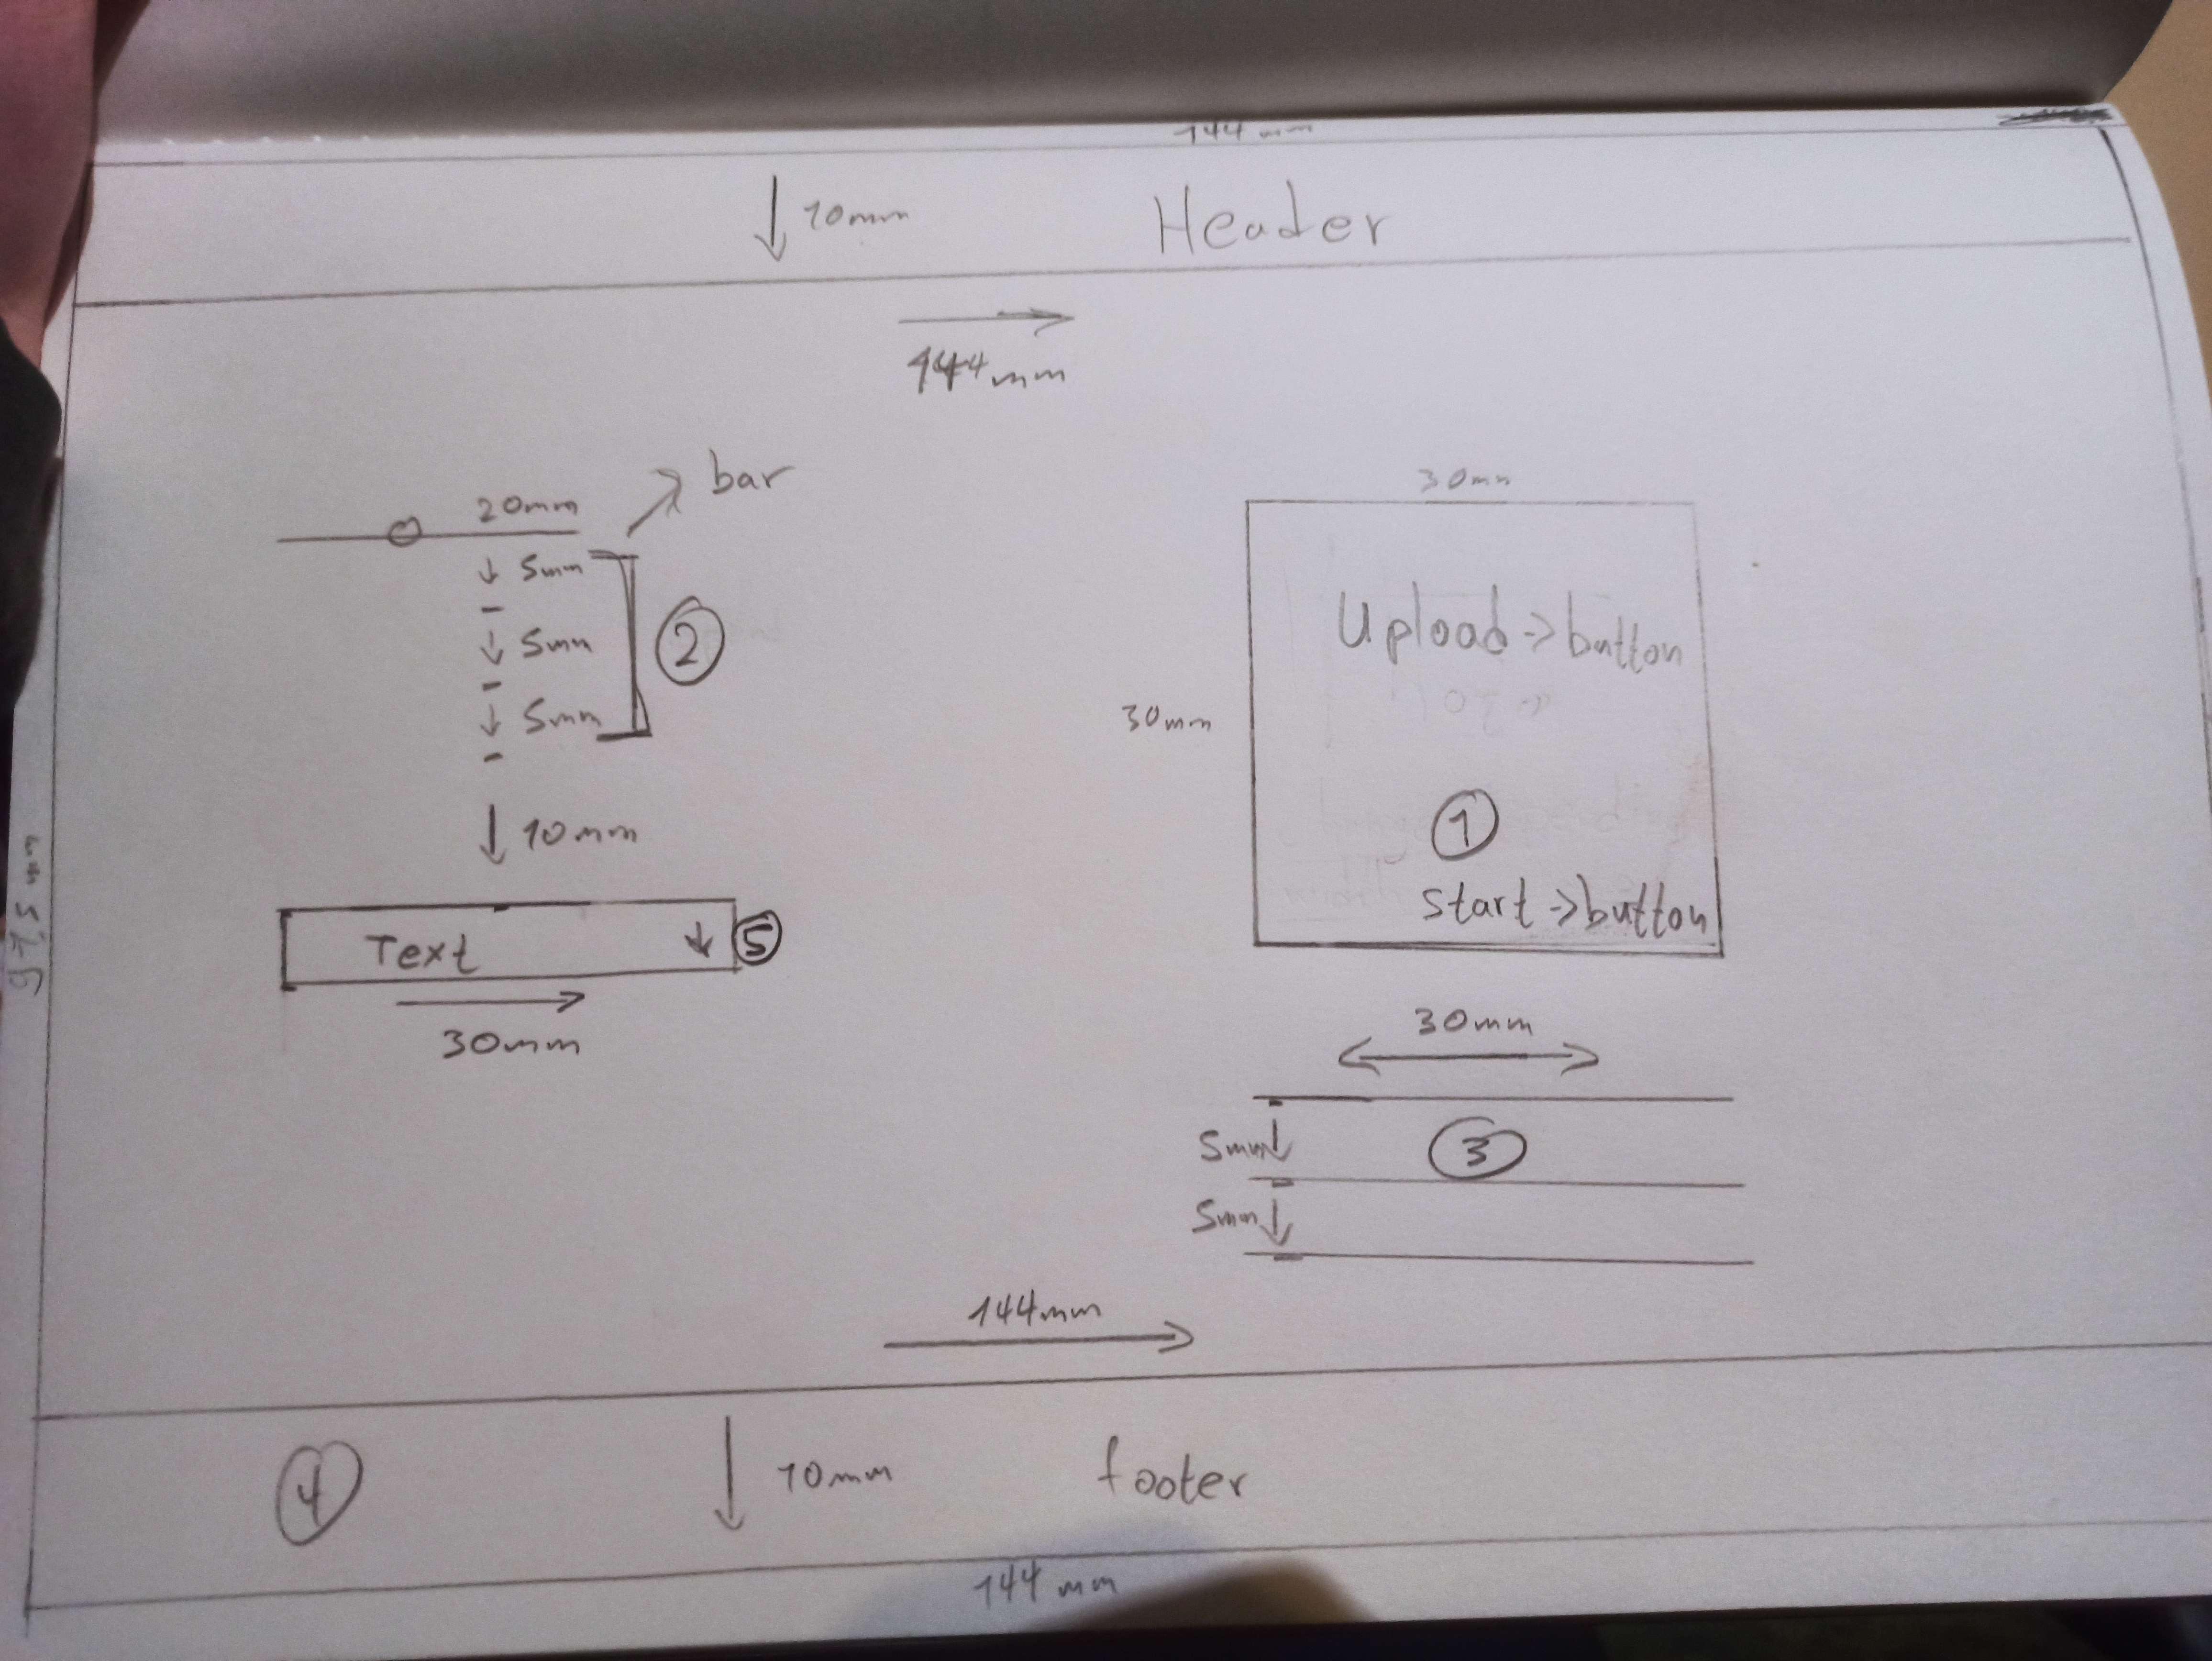 144 mm
10mm
Header
144mm
bar
20mm
5mm
5mm
5mm
2
10mm
Text
5
30mm
30mm
30mm
Upload->button
1
start->button
30mm
5mm
3
5mm
144mm
4
10mm
footer
144 mm